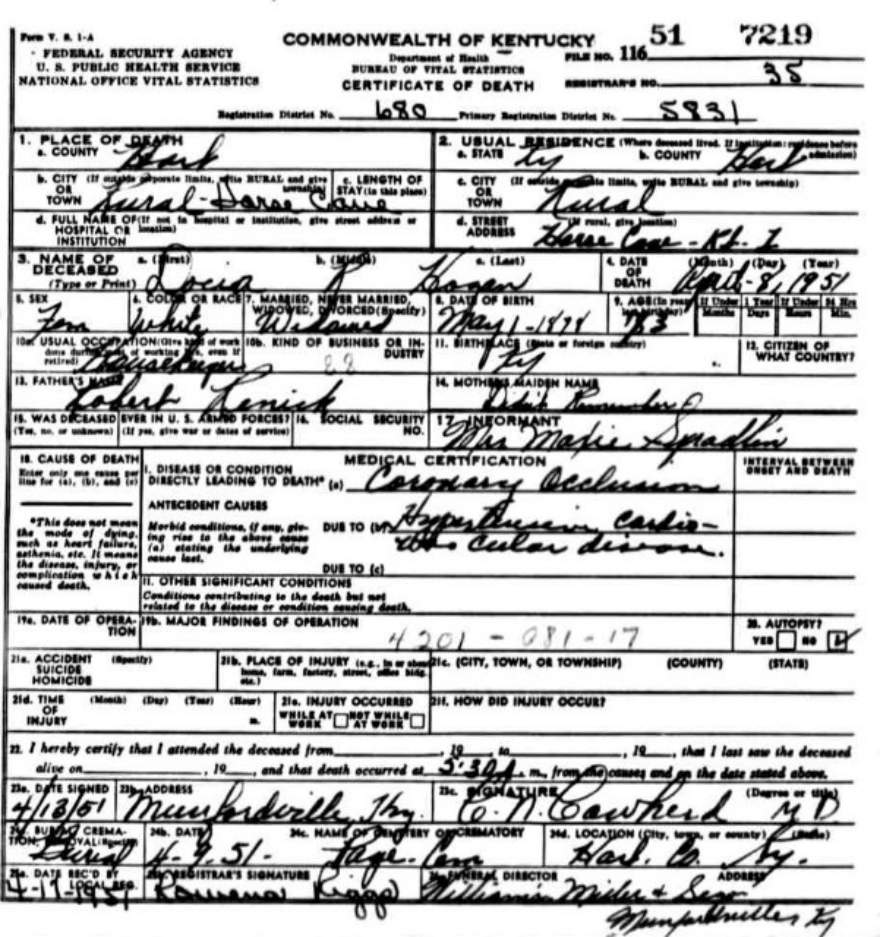 Form V. S. 1-A
FEDERAL SECURITY AGENCY
U. S. PUBLIC HEALTH SERVICE
NATIONAL OFFICE VITAL STATISTICS
COMMONWEALTH OF KENTUCKY
Department of Health
BUREAU OF VITAL STATISTICS
CERTIFICATE OF DEATH
FILE NO. 116 51 7219
REGISTRAR'S NO. 35
Registration District No. 680 Primary Registration District No. 5831
1. PLACE OF DEATH
a. COUNTY Hart
2. USUAL RESIDENCE (Where deceased lived. If institution: residence before admission)
a. STATE Ky b. COUNTY Hart
b. CITY (If outside corporate limits, write RURAL and give township) OR TOWN Rural - Horse Cave
c. LENGTH OF STAY (in this place)
c. CITY (If outside corporate limits, write RURAL and give township) OR TOWN Rural
d. FULL NAME OF (If not in hospital or institution, give street address or location) HOSPITAL OR INSTITUTION
d. STREET ADDRESS (If rural, give location) Horse Cave - Rt. 2
3. NAME OF DECEASED (Type or Print)
a. (First) b. (Middle) R c. (Last) Hogan
4. DATE OF DEATH (Month) (Day) (Year) April - 8, 1951
5. SEX Fem
6. COLOR OR RACE White
7. MARRIED, NEVER MARRIED, WIDOWED, DIVORCED (Specify) Widowed
8. DATE OF BIRTH May 1 - 1878
9. AGE (In years last birthday) 73 If Under 1 Year Months Days If Under 24 Hrs Hours Min.
10a. USUAL OCCUPATION (Give kind of work done during most of working life, even if retired) Housekeeper
10b. KIND OF BUSINESS OR INDUSTRY 88
11. BIRTHPLACE (State or foreign country) Ky
12. CITIZEN OF WHAT COUNTRY?
13. FATHER'S NAME Robert Renick
14. MOTHER'S MAIDEN NAME Didn't Remember
15. WAS DECEASED EVER IN U. S. ARMED FORCES? (Yes, no, or unknown) (If yes, give war or dates of service)
16. SOCIAL SECURITY NO.
17. INFORMANT Mrs Maxie Spradlin
18. CAUSE OF DEATH
Enter only one cause per line for (a), (b), and (c)
MEDICAL CERTIFICATION
INTERVAL BETWEEN ONSET AND DEATH
I. DISEASE OR CONDITION DIRECTLY LEADING TO DEATH* (a) Coronary Occlusion
*This does not mean the mode of dying, such as heart failure, asthenia, etc. It means the disease, injury, or complication which caused death.
ANTECEDENT CAUSES
Morbid conditions, if any, giving rise to the above cause (a) stating the underlying cause last.
DUE TO (b) Hypertensive cardio-
vascular disease.
DUE TO (c)
II. OTHER SIGNIFICANT CONDITIONS
Conditions contributing to the death but not related to the disease or condition causing death.
19a. DATE OF OPERATION
19b. MAJOR FINDINGS OF OPERATION
4201 - 081 - 17
20. AUTOPSY?
YES NO
21a. ACCIDENT SUICIDE HOMICIDE (Specify)
21b. PLACE OF INJURY (e.g., in or about home, farm, factory, street, office bldg. etc.)
21c. (CITY, TOWN, OR TOWNSHIP) (COUNTY) (STATE)
21d. TIME OF INJURY (Month) (Day) (Year) (Hour) m.
21e. INJURY OCCURRED WHILE AT WORK NOT WHILE AT WORK
21f. HOW DID INJURY OCCUR?
22. I hereby certify that I attended the deceased from , 19 to , 19 , that I last saw the deceased
alive on , 19 , and that death occurred at 5:30 A. m., from the causes and on the date stated above.
23a. DATE SIGNED 4/13/51
23b. ADDRESS Munfordville, Ky.
23c. SIGNATURE (Degree or title) C. N. Cowherd M D
24a. BURIAL, CREMATION, REMOVAL (Specify) Burial
24b. DATE 4-9-51-
24c. NAME OF CEMETERY OR CREMATORY Page - Cem
24d. LOCATION (City, town, or county) (State) Hart. Co. Ky.
25a. DATE REC'D BY LOCAL REG. 4-17-1951
25b. REGISTRAR'S SIGNATURE Ramona Riggs
26. FUNERAL DIRECTOR ADDRESS
Munfordville, Ky